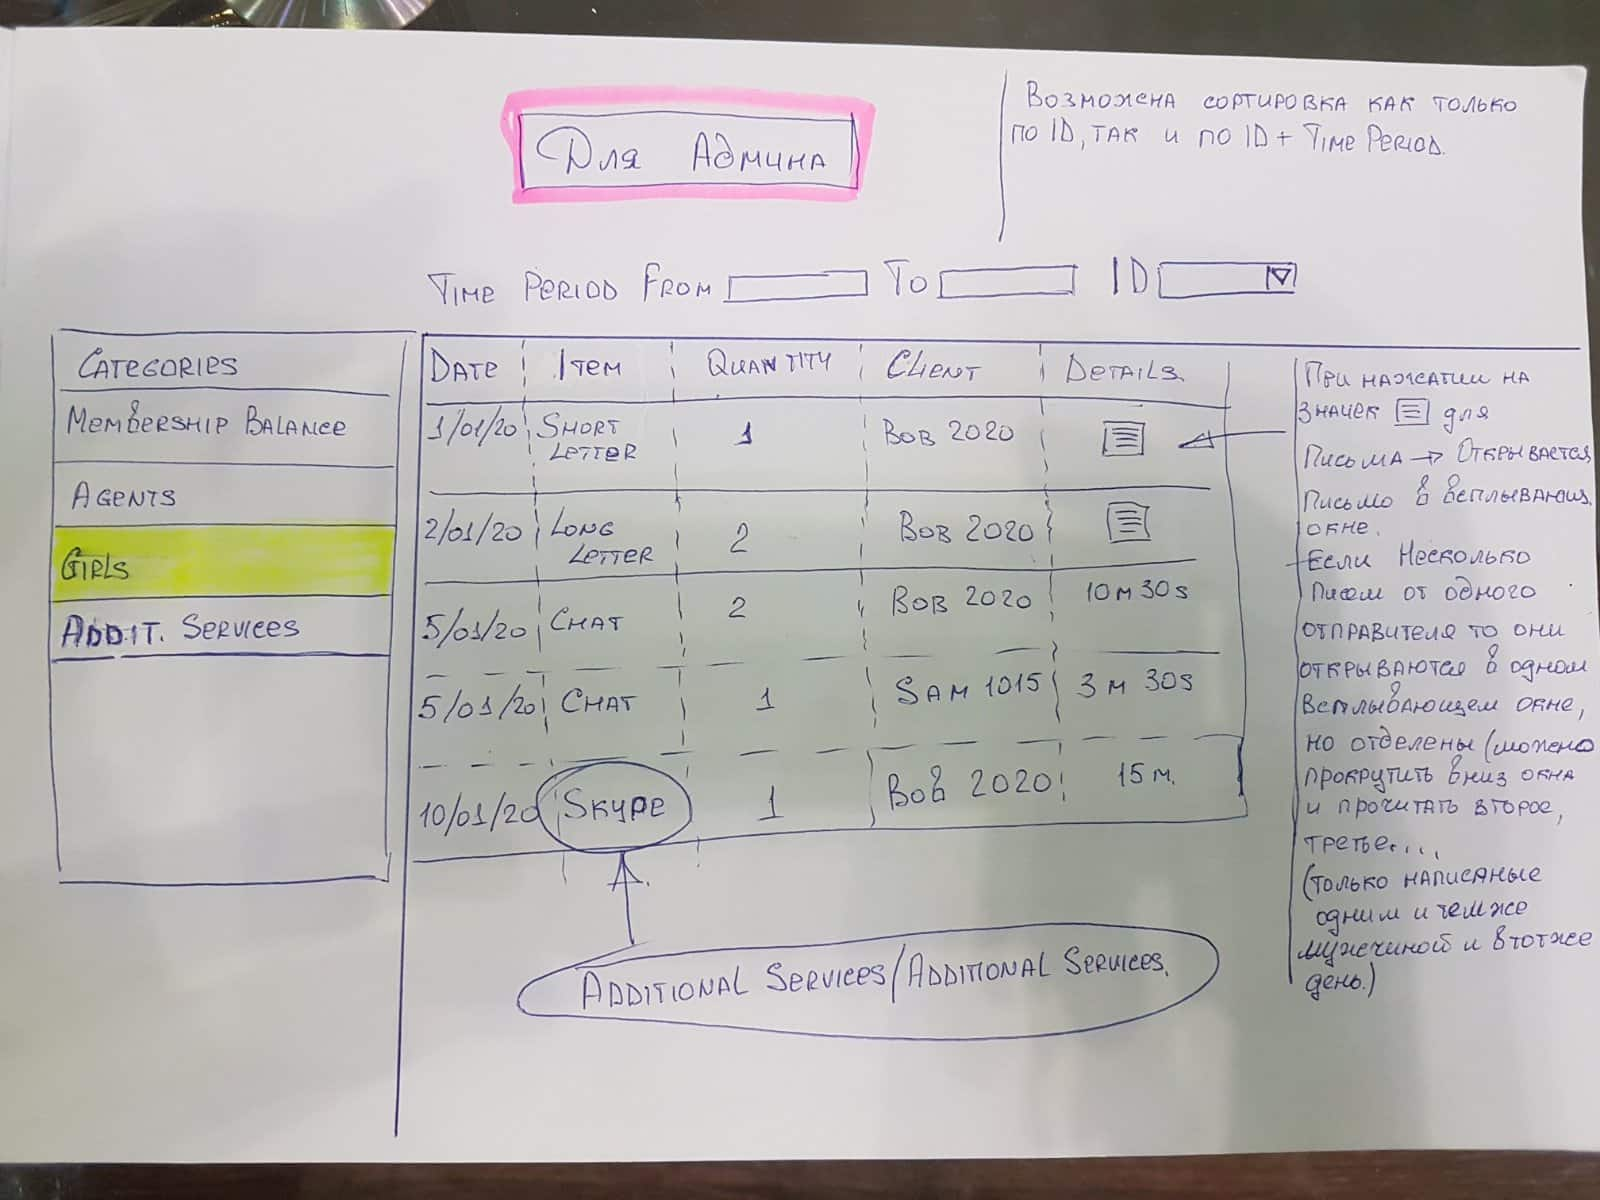 Для Админа
Возможена сортировка как только
по ID, так и по ID + Time Period.
Time Period From To ID
Categories
Membership Balance
Agents
Girls
Addit. Services
Date Item Quantity Client Details
1/01/20 Short Letter 1 Bob 2020
2/01/20 Long Letter 2 Bob 2020
5/01/20 Chat 2 Bob 2020 10м 30s
5/01/20 Chat 1 Sam 1015 3м 30s
10/01/20 Skype 1 Bob 2020 15м.
Additional Services/Additional Services.
При нажатии на
значек для
Письма → Открывается
Письмо в всплывающ.
окне.
Если Несколько
Писем от одного
отправителя то они
открываются в одном
всплывающем окне,
но отделены (можено
прокрутить вниз окна
и прочитать второе,
третье....,
(только написаные
одним и темже
мужчиной и втотже
день.)